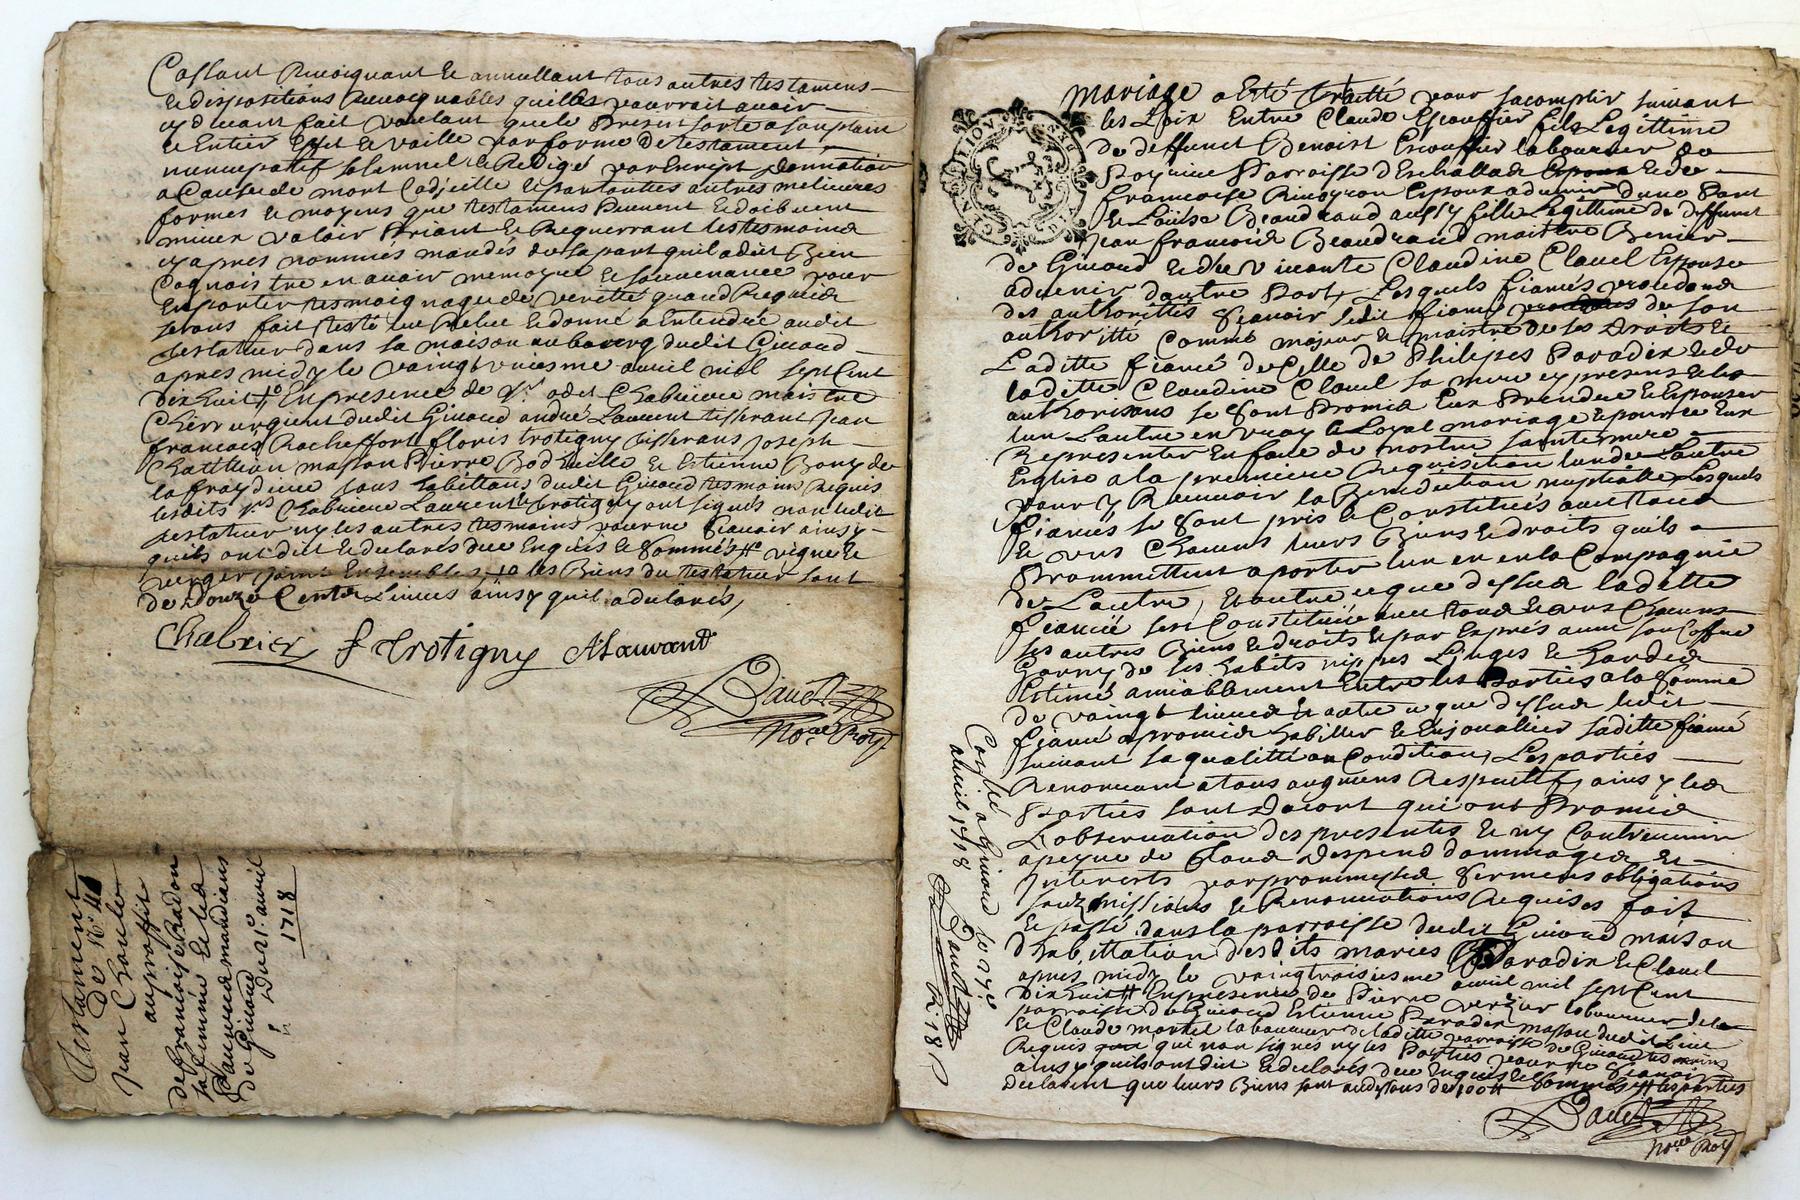 Cassant Revocquant et annullant tous autres testamens
et dispositions Revocquables quil pourrait avoir
cy devant fait voulant que le present sorte a son plain
et Entier Effet et vaille par forme de testament
nuncupatif solemnel et Redigé par Escript donnation
a Cause de mort Codicille et par touttes autres melieures
formes et moyens que testamens peuvent et doibvent
mieux valoir Priant et Requerrant les tesmoins
cy apres nommés mandés de sa part quil a dit Bien
Cognoistre en avoir memoyre et souvenance pour
En porter tesmoignage de verité quand Requis
seront fait Leu Releu et donné a Entendre audit
testateur dans sa maison au bourg dudit Givord
apres midy le vaingt unieme avril mil sept Cent
dix huit En presence de Sr Chabriere maistre
Chirurgient dudit Givord andré Laurent tisserant Jean
francois Racheffort floris trotigny tisserans Joseph
Chattion masson Pierre et Estienne Bony de
la fraydiere tous habittans dudit Givord tesmoins Requis
lesdits Srs Chabriere Laurent et trotigny ont signés non ledit
testateur ny les autres tesmoins pour ne sçavoir ainsy
quils ont dit et declarés de ce Enquis et sommés vigne et
verger joint Ensembles les Biens du testateur sont
de douze Cents Livres ainsy quil a declarés,
Chabrier f Trotigny A Lauvant
Dauet
Nore Roy
Testament
De
jean
au proffit
de francoise Radon
sa femme Et les
Pauvres mandians
de Givord
Du 21e avril
1718
mariage a Esté Traitté pour sacomplir suivant
les Loix Entre Claude Escouffier fils Legittime
de deffunct Benoist Escouffier laboureur de
Parroisse D'Eschallas et de
francoise Epoux advenir dune Part
Et Loüise Beaudrand aussy fille Legittime de deffunct
Jean francois Beaudrand maistre
de Givord et de vivante Claudine Clavel Espouse
advenir dautre Part, Lesquels fiancés procedans
des authorittés sçavoir ledit fiancé de son
authoritté Comme majeur et maistre de ses Droits et
Laditte fiancé de Celle de Philipes Paradix et de
laditte Claudine Clavel sa mere cy presens et les
authorisans se sont Promis Eux Prendre et Espouser
lun Lautre en vray et Loyal mariage et pour ce Eux
Representer En face de nostre sainte mere
Eglise a la premiere Requisition lun de Lautre
pour y Recevoir la Benediction nuptialle Lesquels
fiancés se sont pris et Constitués avec tous
Et uns Chacuns leurs Biens et droits quils
Prommettent aporter lun en en la Compagnie
de Lautre, Et outre ce que dessus laditte
fiancé sest Constituée avec tous et uns Chacuns
ses autres Biens et droits Et par Exprés avec son Coffre
Garny de ses habits nippes Linges et hardes
Estimé amiablement Entre les Parties a la somme
de vaingt livres Et outre ce que dessus ledit
fiancé a promis habiller et Enjoualler laditte fiancé
suivant sa qualitté ou Condition, Les parties
Renoncant a tous augmens Respectif, ainsy les
Parties sont Dacort qui ont Promis
Lobservation des presentes et ny Contrevenir
a peyne de tous Despend dommages et
Interests par prommesse sermens obligations
soubmissions et Renontiations Requises fait
Et passé dans la parroisse dudit Givord maison
Dhabittation desdits mariés Paradix et Clavel
apres midy le vaingtroisiesme avril mil sept Cent
dix huit En presence de Pierre Verzier laboureur de la
parroisse de Givord Estienne Parades masson dudit Lieu
Et Claude mortel laboureur de laditte parroisse de Givord tesmoins
Requis qui non signés ny les Parties pour ne sçavoir
ainsy quils ont dit Et declarés de ce Enquis Et sommés les parties
declarent que leurs Biens sont audessous de
Dauet
Nore Roy
Conllé a Givord
avril 1718